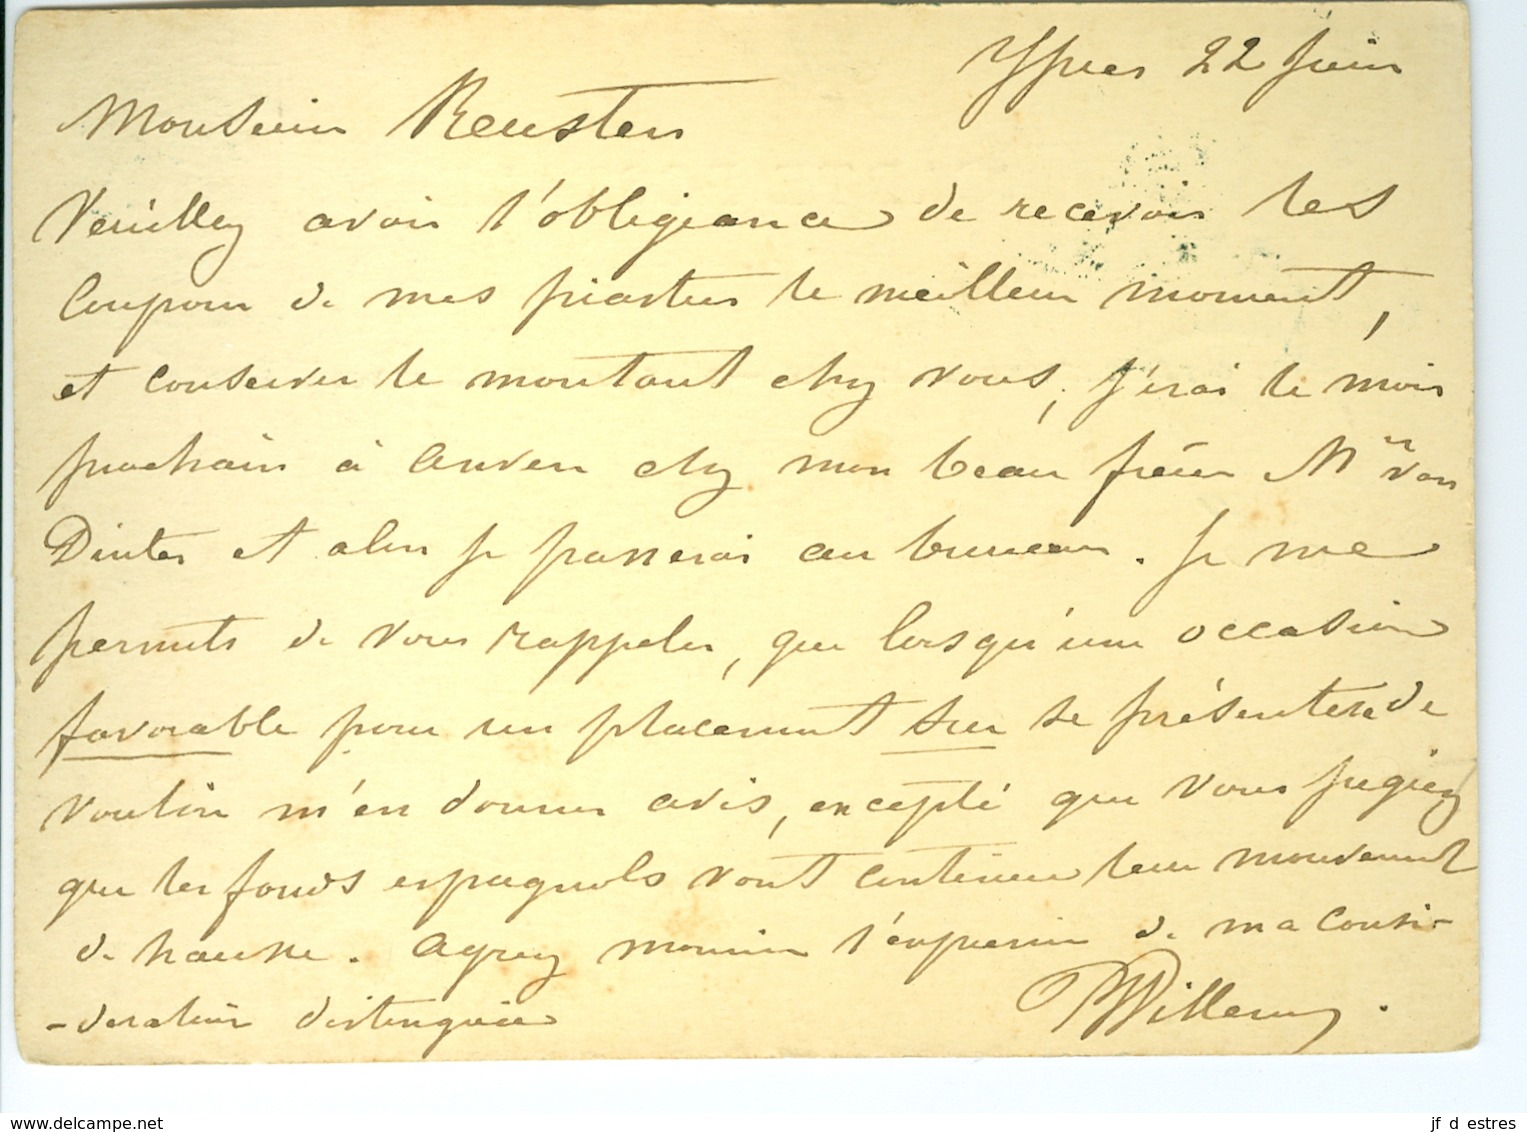 Ypres 22 Juin
Monsieur Reusten
Veuillez avoir l'obligeance de recevoir les
Coupons de mes piastres le meilleur moment,
et conserver le montant chez vous, j'irai le mois
prochain à Anvers chez mon beau frère Mr van
Dinter et alors je passerai au bureau. Je me
permets de vous rappeler, que lorsqu'une occasion
favorable pour un placement sur se présentera de
vouloir m'en donner avis, excepté que vous jugiez
que les fonds espagnols vont continuer leur mouvement
de hausse. Agréez monsieur l'expression de ma consi-
-deration distinguée
Willems.
www.delcampe.net
jf d estres